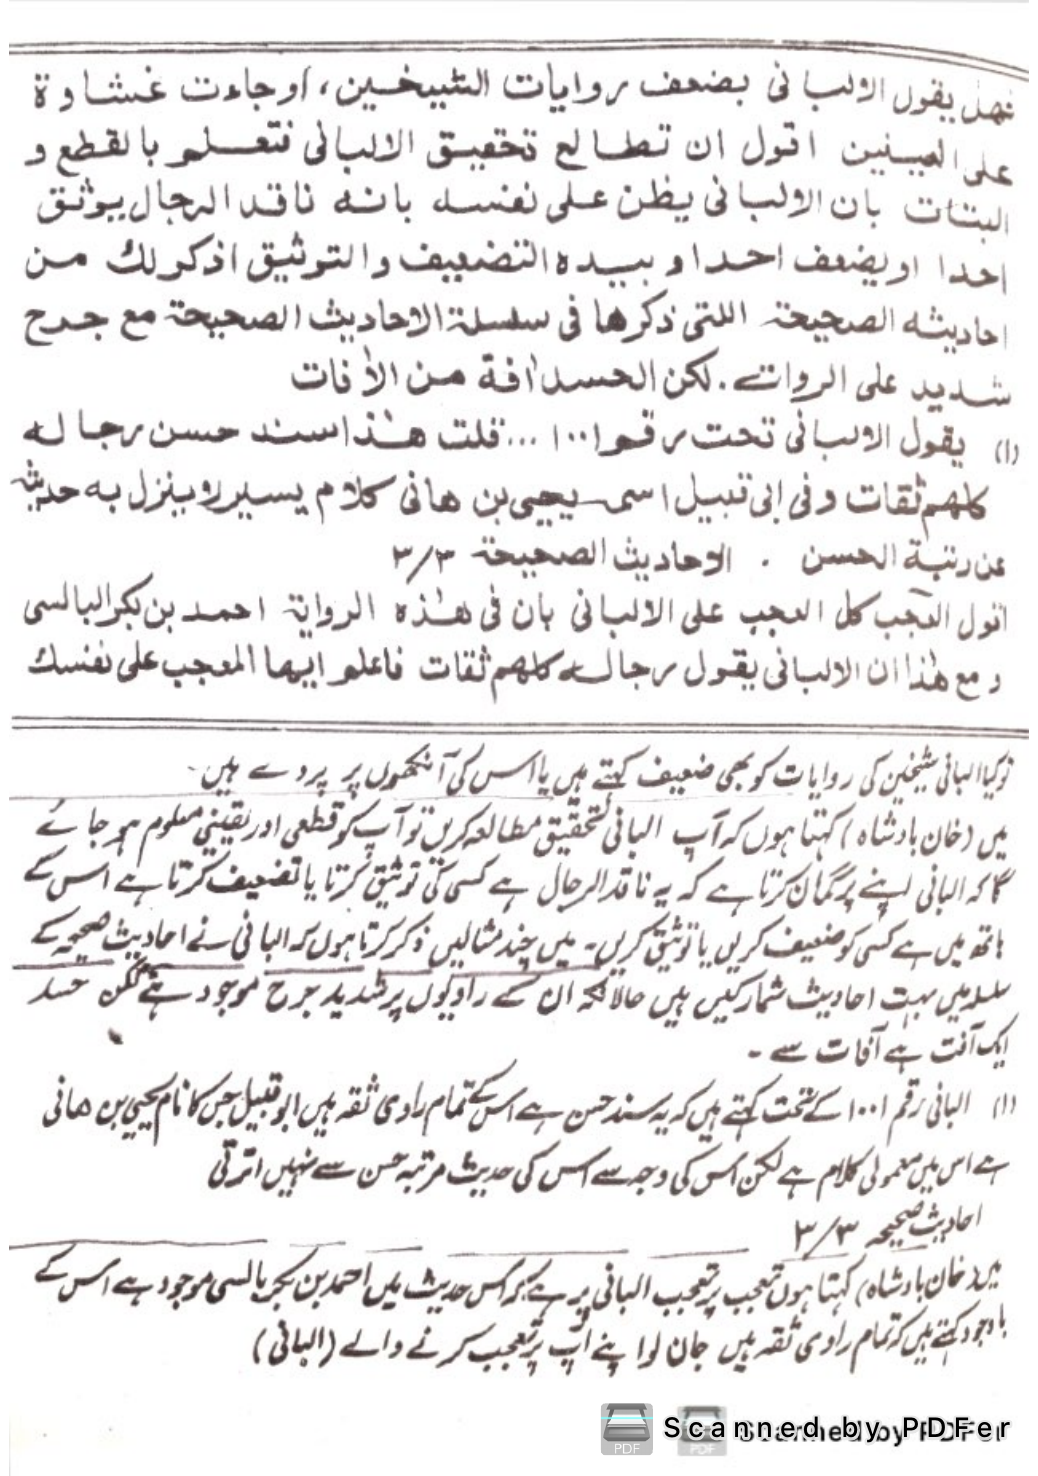 فهل يقول الالبانی بضعف روايات الشيخين، او جاءت غشاوة
على العينين اقول ان تطالع تحقيق الالبانی فتعلم بالقطع و
البتات بان الالبانی يظن على نفسه بانه ناقد الرجال يوثق
احدا او يضعف احدا و بيده التضعيف والتوثيق اذكر لك من
احاديثه الصحيحة اللتی ذكرها فی سلسلة الاحاديث الصحيحة مع جرح
شديد على الروات. لكن الحسد اٰفة من الاٰفات
(۱) يقول الالبانی تحت رقم ۱۰۰۱ ... قلت هٰذا سند حسن رجاله
كلهم ثقات وفی ابی قبيل اسمه يحيى بن هانی كلام يسير لا ينزل به حديثه
عن رتبة الحسن . الاحاديث الصحيحة ۳/۳
اقول العجب كل العجب على الالبانی بان فی هٰذه الرواية احمد بن بكر البالسی
و مع هٰذا ان الالبانی يقول رجاله كلهم ثقات فاعلم ايها المعجب على نفسك
تو کیا البانی شیخین کی روایات کو بھی ضعیف کہتے ہیں یا اس کی آنکھوں پر پردے ہیں۔
میں (خان بادشاہ) کہتا ہوں کہ آپ البانی تحقیق مطالعہ کریں تو آپ کو قطعی اور یقینی معلوم ہو جائے
گا کہ البانی اپنے پر گمان کرتا ہے کہ یہ ناقد الرجال ہے کسی کی توثیق کرتا یا تضعیف کرتا ہے اس کے
ہاتھ میں ہے کسی کو ضعیف کریں یا توثیق کریں۔ میں چند مثالیں ذکر کرتا ہوں کہ البانی نے احادیث صحیحہ کے
سلسلہ میں بہت احادیث شمار کیں ہیں حالانکہ ان کے راویوں پر شدید جرح موجود ہے لکن حسد
ایک آفت ہے آفات سے ۔
(۱) البانی رقم ۱۰۰۱ کے تحت کہتے ہیں کہ یہ سند حسن ہے اس کے تمام راوی ثقہ ہیں ابو قبیل جس کا نام یحیی بن ھانی
ہے اس میں معمولی کلام ہے لیکن اس کی وجہ سے اس کی حدیث مرتبہ حسن سے نہیں اترتی
احادیث صحیحہ ۳/۳
میں (خان بادشاہ) کہتا ہوں تعجب پر تعجب البانی پر ہے کہ اس حدیث میں احمد بن بکر بالسی موجود ہے اس کے
باوجود کہتے ہیں کہ تمام راوی ثقہ ہیں جان لو اپنے آپ پر تعجب کرنے والے (البانی)
Scanned by PDFer